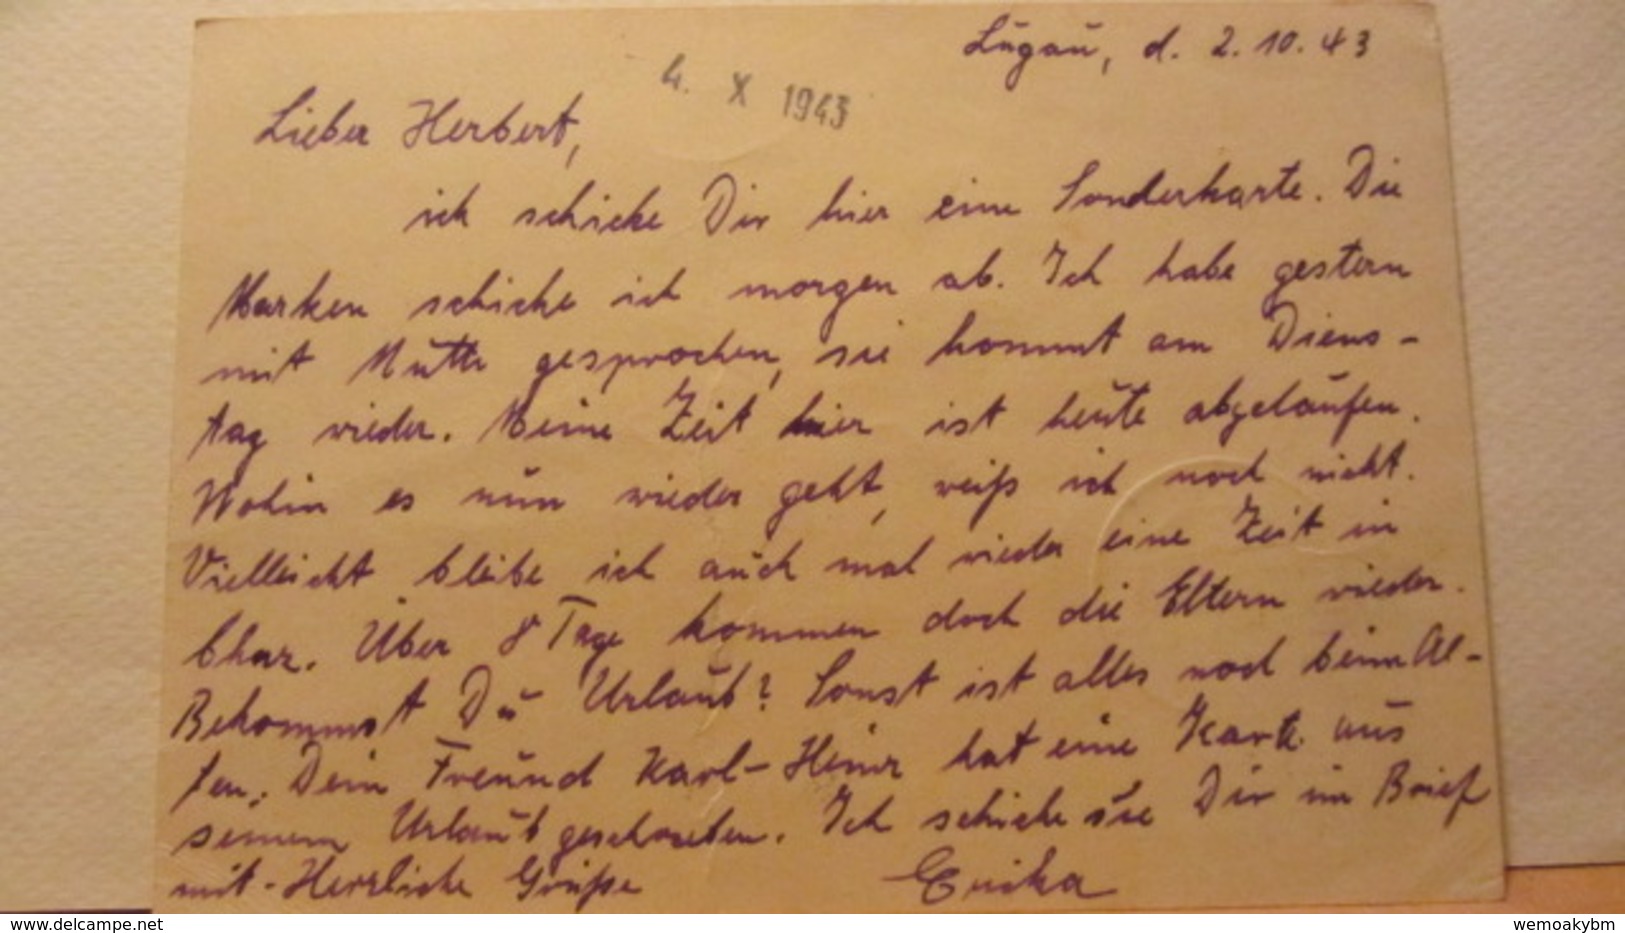 Lugau, d. 2.10.43
4. X 1943
Lieber Herbert,
ich schicke Dir hier eine Sonderkarte. Die
Marken schicke ich morgen ab. Ich habe gestern
mit Mutti gesprochen, sie kommt am Diens-
tag wieder. Meine Zeit hier ist heute abgelaufen.
Wohin es nun wieder geht, weiß ich noch nicht.
Vielleicht bleibe ich auch mal wieder eine Zeit in
Char. Über 8 Tage kommen doch die Eltern wieder.
Bekommst Du Urlaub? Sonst ist alles noch beim Al-
ten. Dein Freund Karl-Heinz hat eine Karte aus
seinem Urlaub geschrieben. Ich schicke sie Dir im Brief
mit. Herzliche Grüße Erika
delcampe.net
wemoakybm